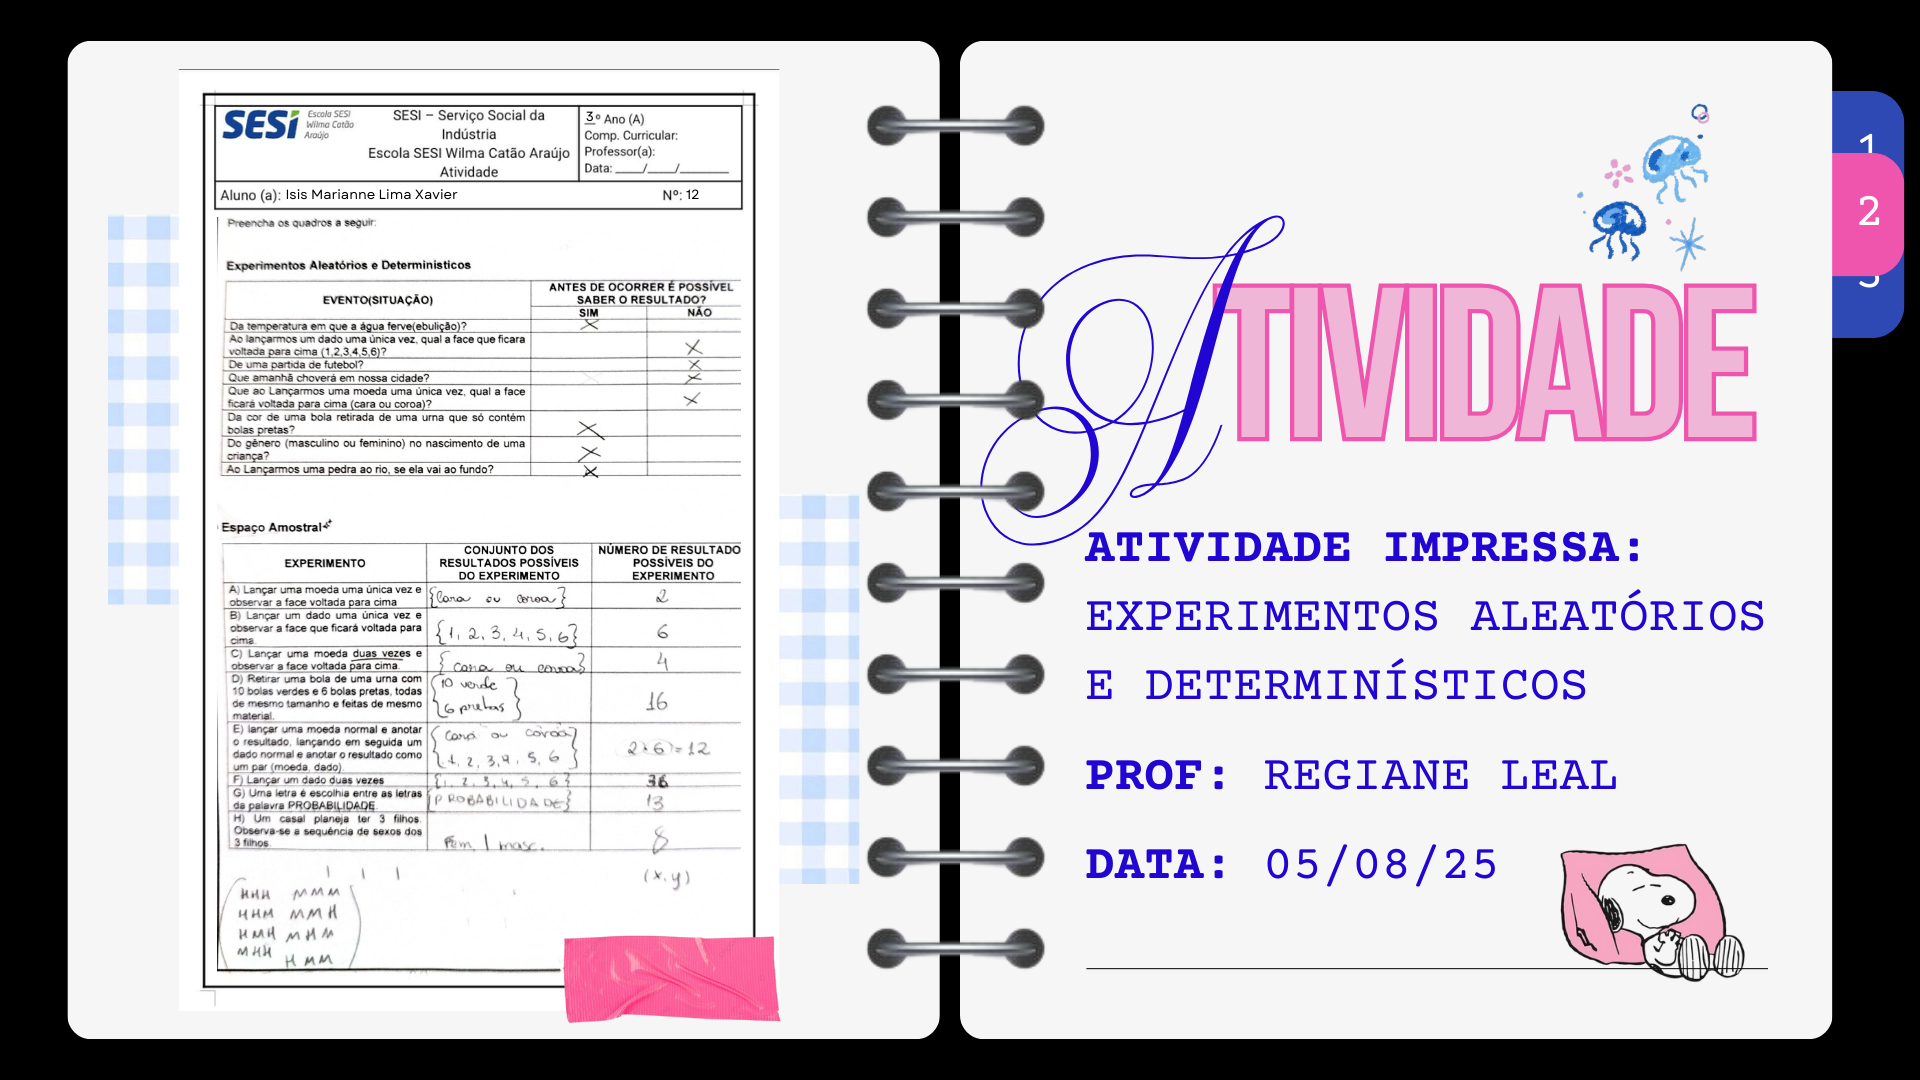 SESI
Escola SESI
Wilma Catão
Araújo
SESI – Serviço Social da
Indústria
Escola SESI Wilma Catão Araújo
Atividade
3º Ano (A)
Comp. Curricular:
Professor(a):
Data: ____/____/_______
Aluno (a): Isis Marianne Lima Xavier
Nº: 12
Preencha os quadros a seguir:
Experimentos Aleatórios e Determinísticos
EVENTO(SITUAÇÃO)
ANTES DE OCORRER É POSSÍVEL
SABER O RESULTADO?
SIM NÃO
Da temperatura em que a água ferve(ebulição)? X
Ao lançarmos um dado uma única vez, qual a face que ficara
voltada para cima (1,2,3,4,5,6)? X
De uma partida de futebol? X
Que amanhã choverá em nossa cidade? X
Que ao Lançarmos uma moeda uma única vez, qual a face
ficará voltada para cima (cara ou coroa)? X
Da cor de uma bola retirada de uma urna que só contém
bolas pretas? X
Do gênero (masculino ou feminino) no nascimento de uma
criança? X
Ao Lançarmos uma pedra ao rio, se ela vai ao fundo? X
Espaço Amostral
EXPERIMENTO
CONJUNTO DOS
RESULTADOS POSSÍVEIS
DO EXPERIMENTO
NÚMERO DE RESULTADO
POSSÍVEIS DO
EXPERIMENTO
A) Lançar uma moeda uma única vez e
observar a face voltada para cima
{Cara ou coroa}
2
B) Lançar um dado uma única vez e
observar a face que ficará voltada para
cima.
{1, 2, 3, 4, 5, 6}
6
C) Lançar uma moeda duas vezes e
observar a face voltada para cima.
{cara ou coroa}
4
D) Retirar uma bola de uma urna com
10 bolas verdes e 6 bolas pretas, todas
de mesmo tamanho e feitas de mesmo
material.
{10 verde
6 pretas}
16
E) lançar uma moeda normal e anotar
o resultado, lançando em seguida um
dado normal e anotar o resultado como
um par (moeda, dado).
{cara ou coroa
1, 2, 3, 4, 5, 6}
2×6=12
F) Lançar um dado duas vezes
{1, 2, 3, 4, 5, 6}
36
G) Uma letra é escolhia entre as letras
da palavra PROBABILIDADE.
{PROBABILIDADE}
13
H) Um casal planeja ter 3 filhos.
Observa-se a sequência de sexos dos
3 filhos.
Fem / masc.
8
(x,y)
HHH MMM
HHM MMH
HMH MHM
MHH HMM
ATIVIDADE
ATIVIDADE IMPRESSA:
EXPERIMENTOS ALEATÓRIOS
E DETERMINÍSTICOS
PROF: REGIANE LEAL
DATA: 05/08/25
1
2
3